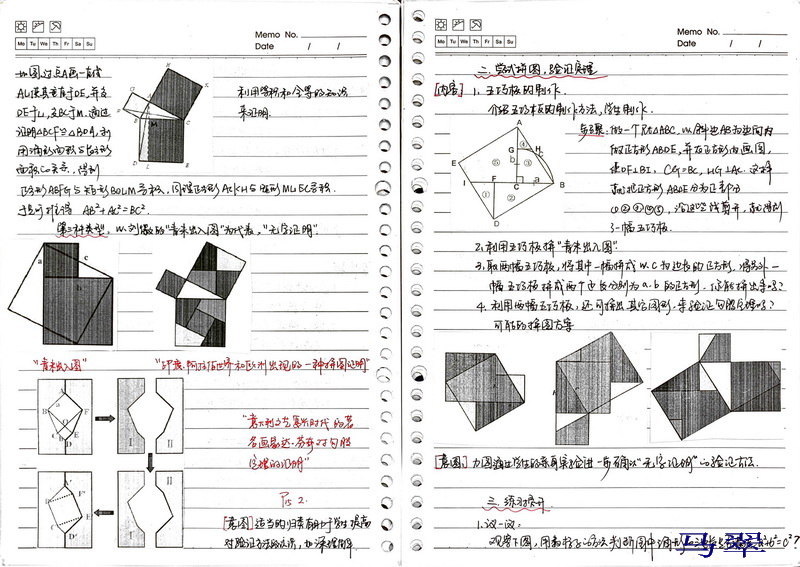 Memo No.
Mo Tu We Th Fr Sa Su
Date / /
如图过点A画一直线
AL使其垂直于DE,并交
DE于L,交BC于M.通过
证明△BCF≌△BDA,利
用三角形面积与长方形
面积的关系,得到
正方形ABFG与矩形BDLM等积,同理正方形ACKHG与矩形MLEC等积,
于是可推得 AB²+AC²=BC².
第三种类型,以刘徽的“青朱出入图”为代表,“无字证明”.
利用等积和全等的知识
来证明.
“青朱出入图”
“印度、阿拉伯世界和欧洲出现的一种拼图证明”
“意大利文艺复兴时代的著
名画家达·芬奇对勾股
定理的证明”
P52.
[意图]适当的归类有助于学生提高
对验证方法的认识,加深理解.
Memo No.
Mo Tu We Th Fr Sa Su
Date / /
二.尝试拼图,验证定理
[内容] 1. 五巧板的制作.
介绍五巧板的制作方法,学生制作.
步骤:做一个Rt△ABC,以斜边AB为边向内
做正方形ABDE,并在正方形内画图,
使DF⊥BI, CG=BC, HG⊥AC.这样
就把正方形ABDE分为五部分
①②③④⑤,沿这些线剪开,就得到
了一幅五巧板.
2.利用五巧板拼“青朱出入图”
3.取两幅五巧板,将其中一幅拼成以c为边长的正方形,将另外一
幅五巧板拼成两个边长分别为a、b的正方形.你能拼出来吗?
4.利用两幅五巧板,还可拼出其它图形,来验证勾股定理吗?
可能的拼图方案
[意图]力图通过学生的亲身实验进一步体会“无字证明”的验证方法.
三.练习展开
1.议一议:
观察下图,用数格子的方法判断图中三角形的三边长是否满足a²+b²=c²?